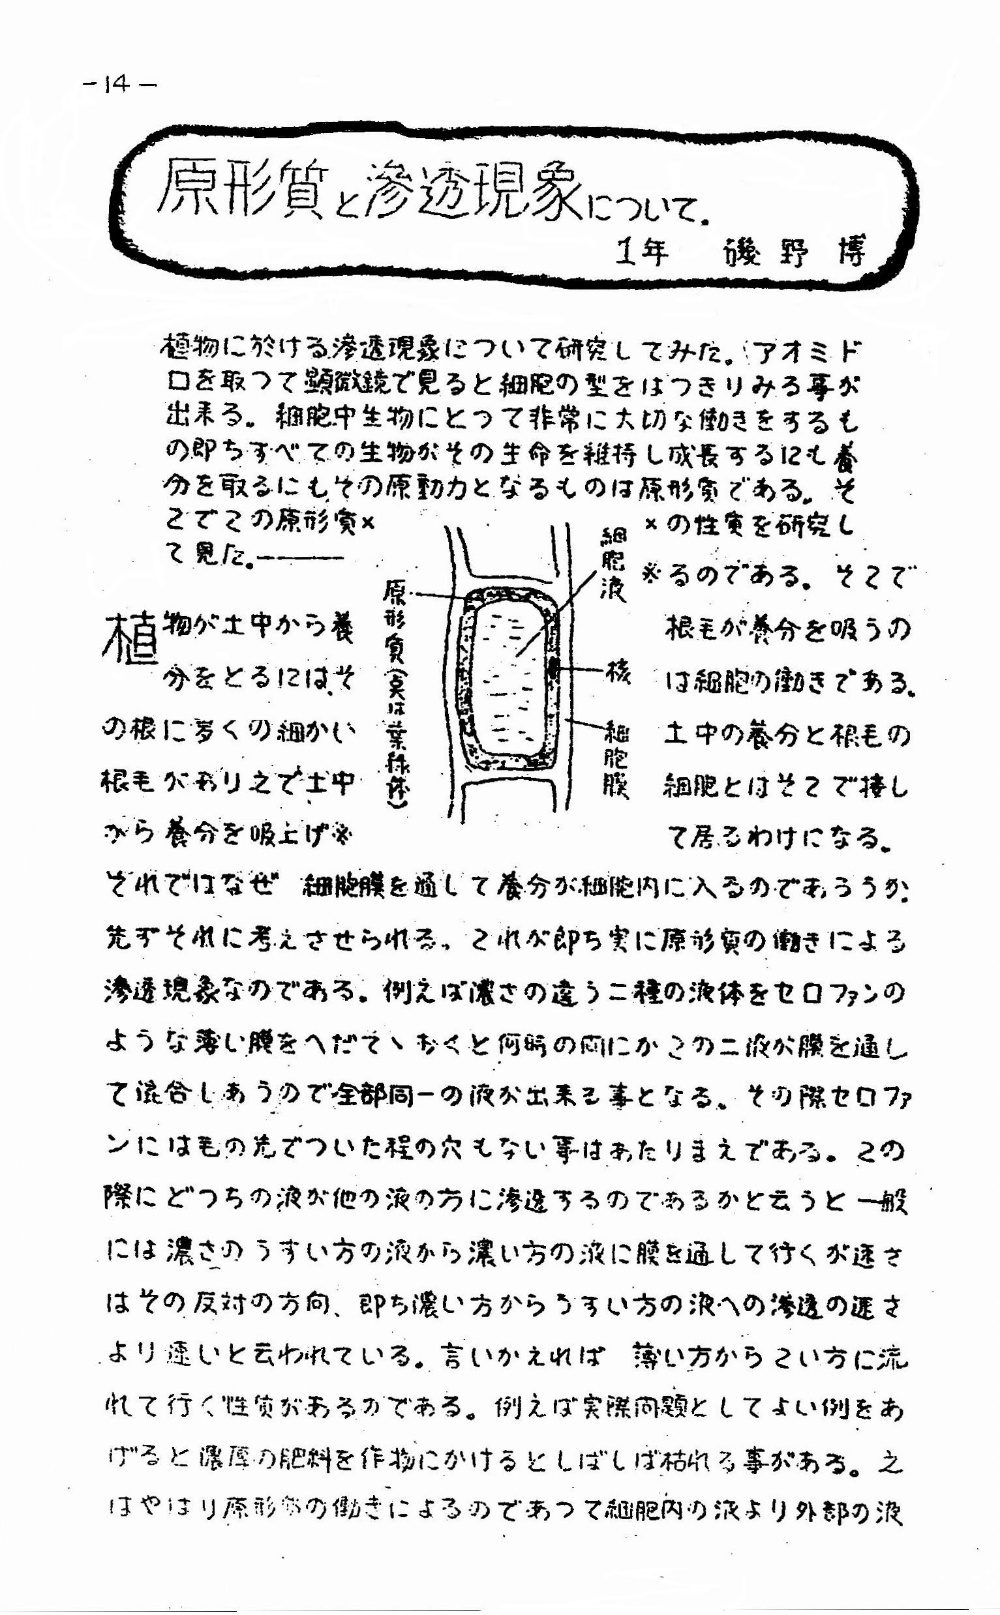 -14-
原形質と滲透現象について.
1年 磯野 博
植物に於ける滲透現象について研究してみた。アオミド
ロを取つて顕微鏡で見ると細胞の型をはつきりみる事が
出来る。細胞中生物にとつて非常に大切な働きをするも
の即ちすべての生物がその生命を維持し成長するにも養
分を取るにもその原動力となるものは原形質である。そ
こでこの原形質×
×の性質を研究し
て見た。———
植物が土中から養
分をとるにはそ
の根に多くの細かい
根毛があり之で土中
から養分を吸上げ※
原形質(実は葉緑体)
細胞液
核
細胞膜
※るのである。そこで
根毛が養分を吸うの
は細胞の働きである。
土中の養分と根毛の
細胞とはそこで接し
て居るわけになる。
それではなぜ 細胞膜を通して養分が細胞内に入るのであろうか.
先ずそれに考えさせられる。これが即ち実に原形質の働きによる
滲透現象なのである。例えば濃さの違う二種の液体をセロファンの
ような薄い膜をへだてゝおくと何時の間にかこの二液が膜を通し
て混合しあうので全部同一の液が出来る事となる。その際セロファ
ンにはもの先でついた程の穴もない事はあたりまえである。この
際にどつちの液が他の液の方に滲透するのであるかと云うと一般
には濃さのうすい方の液から濃い方の液に膜を通して行くが速さ
はその反対の方向、即ち濃い方からうすい方の液への滲透の速さ
より速いと云われている。言いかえれば 薄い方からこい方に流
れて行く性質があるのである。例えば実際問題としてよい例をあ
げると濃厚の肥料を作物にかけるとしばしば枯れる事がある。之
はやはり原形質の働きによるのであつて細胞内の液より外部の液